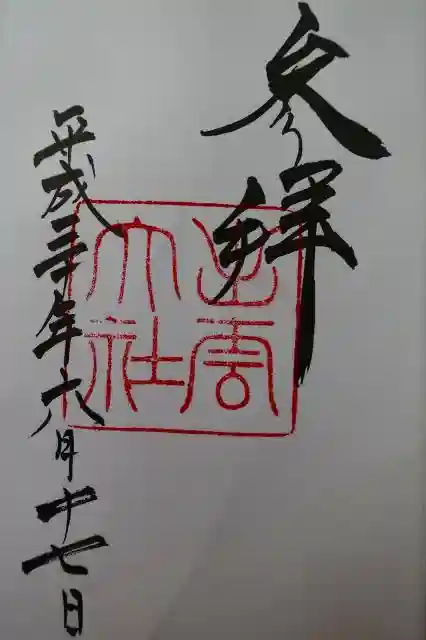 参拝
出雲大社
平成三十年六月十七日